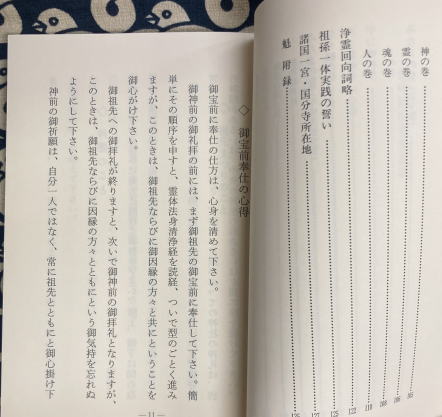 神の巻
霊の巻
魂の巻
人の巻
浄霊回向詞略
祖孫一体実践の誓い
諸国一宮・国分寺所在地
附録
◇ 御宝前奉仕の心得
御宝前に奉仕の仕方は、心身を清めて下さい。
御神前の御礼拝の前には、まず御祖先の御宝前に奉仕して下さい。簡
単にその順序を申すと、霊体法身清浄経を読経、ついで型のごとく進み
ますが、このときは、御祖先ならびに御因縁の方々と共にということを
御心がけ下さい。
御祖先への御拝礼が終りますと、次いで御神前の御拝礼となりますが、
このときは、御祖先ならびに因縁の方々とともにという御気持を忘れぬ
ようにして下さい。
神前の御祈願は、自分一人ではなく、常に祖先とともにと御心掛け下
—11—